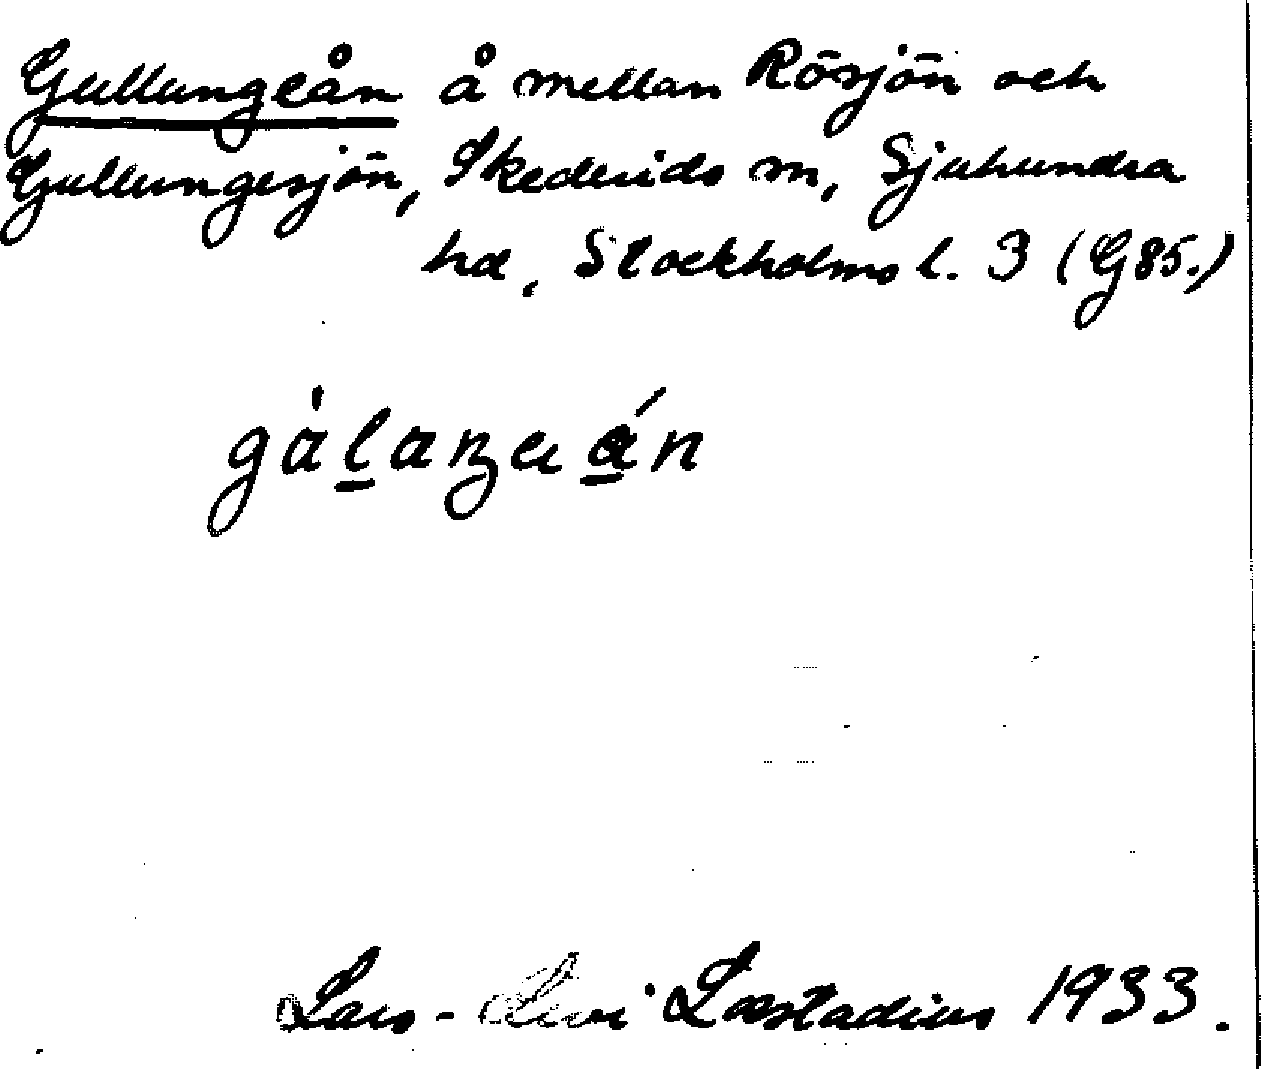 Gullungeån å mellan Rösjön och
Gullungesjön, Skederids sn, Sjuhundra
hd, Stockholms l. 3 (G85.)
Lars-Levi Læstadius 1933.